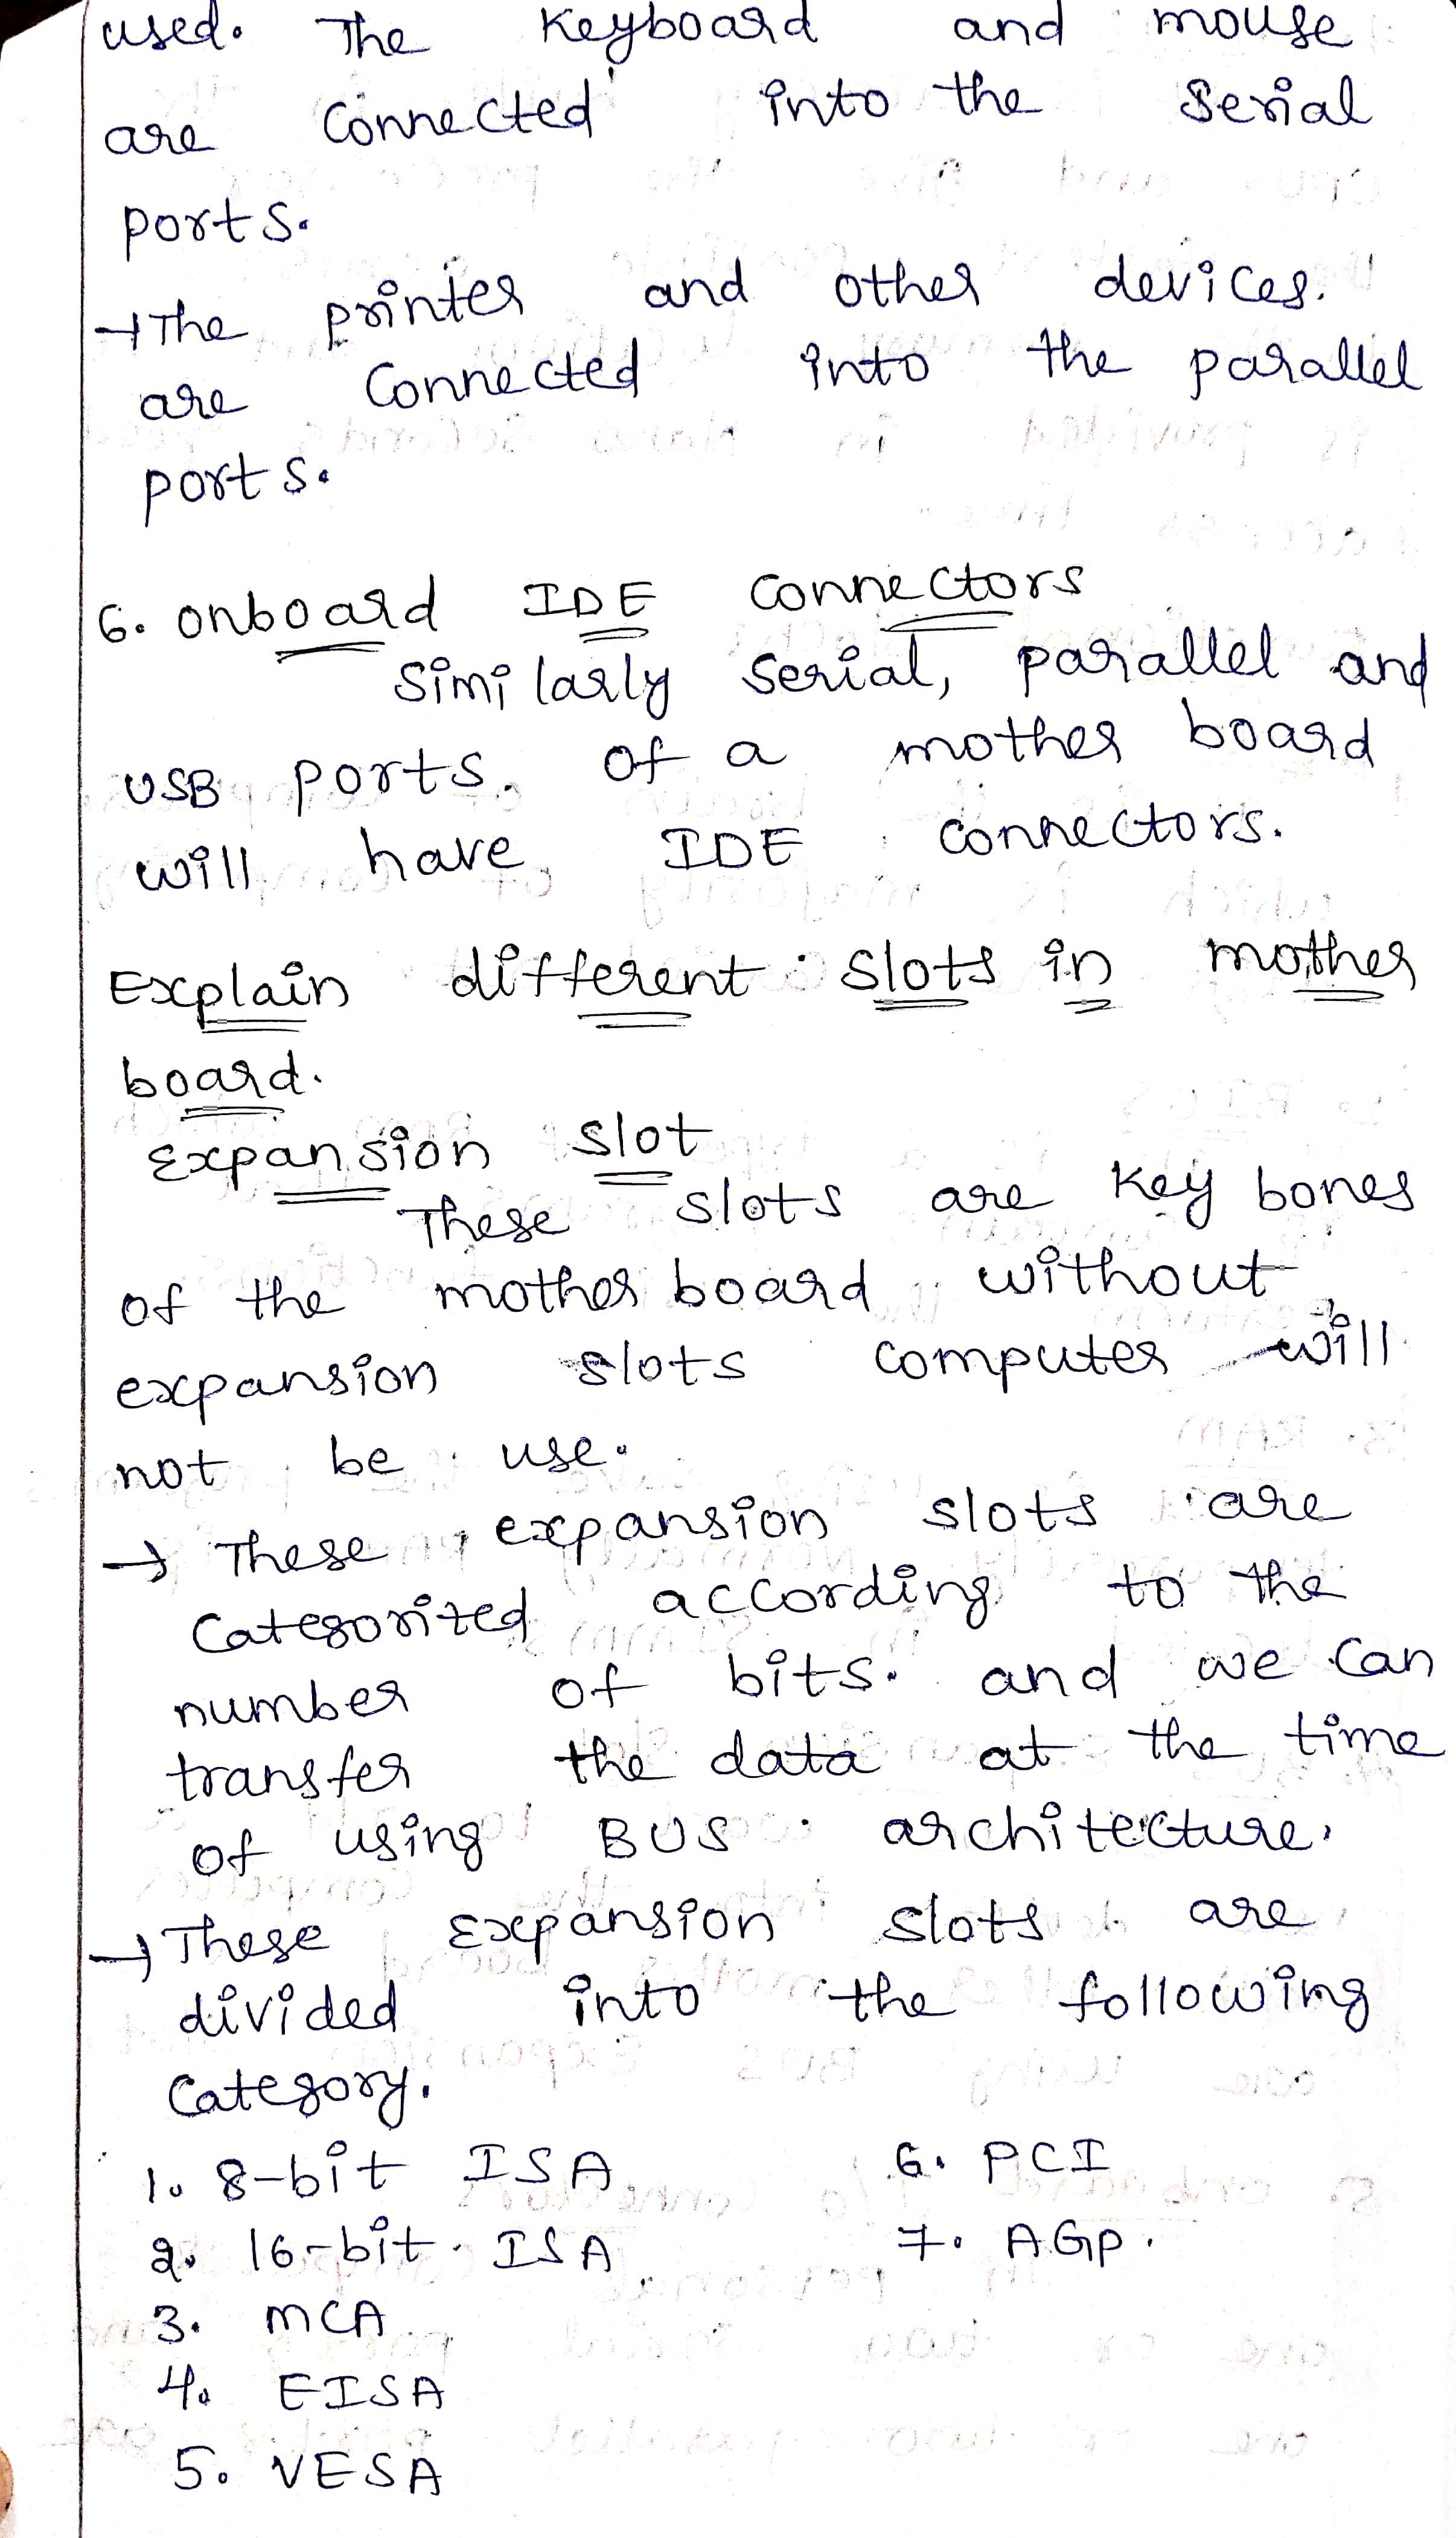 used. The Keyboard and mouse
are Connected into the Serial
ports.
→ The printer and other devices.
are Connected into the parallel
ports.
6. onboard IDE Connectors
Similarly Serial, parallel and
USB ports. of a mother board
will have IDE connectors.
Explain different slots in mother
board.
Expansion slot
These slots are Key bones
of the mother board without
expansion slots computer will
not be use.
→ These expansion slots are
Categorized according to the
number of bits. and we can
transfer the data at the time
of using BUS architecture.
→ These Expansion slots are
divided into the following
Category.
1. 8-bit ISA 6. PCI
2. 16-bit ISA 7. AGP.
3. MCA
4. EISA
5. VESA